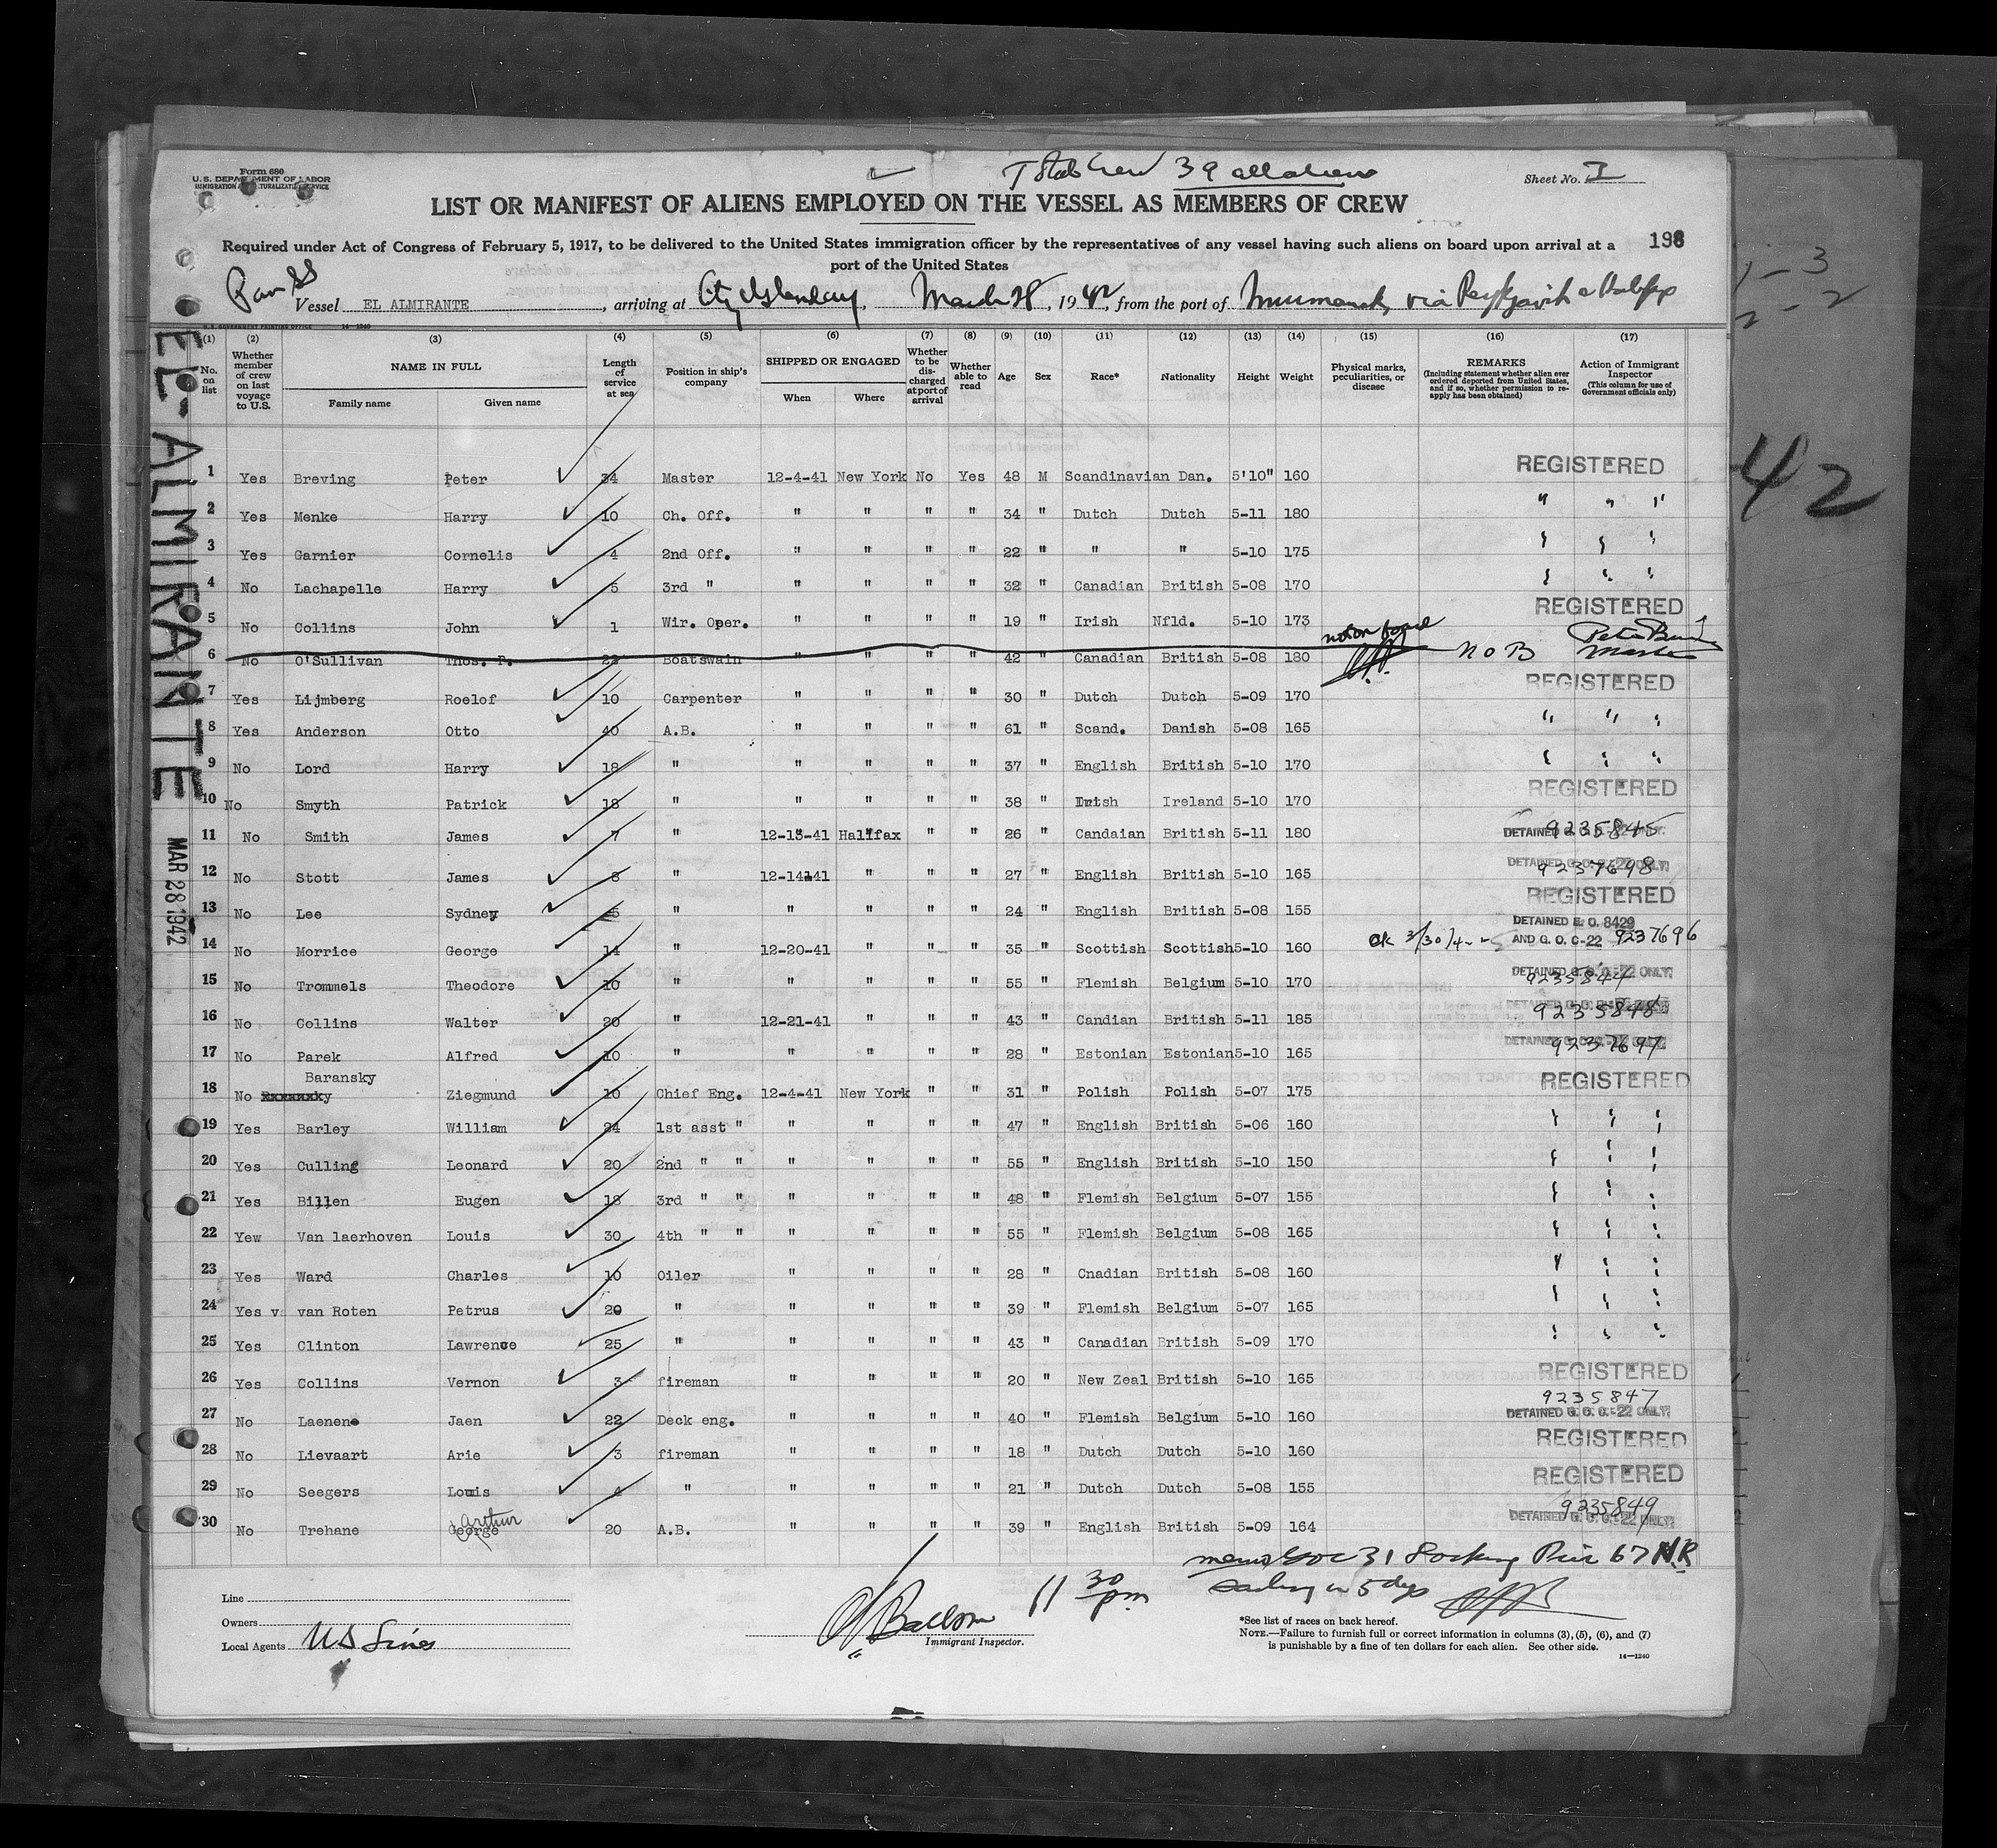 Form 680
U.S. DEPARTMENT OF LABOR
IMMIGRATION NATURALIZATION SERVICE
Total Crew 39 all aliens
Sheet No. I
LIST OR MANIFEST OF ALIENS EMPLOYED ON THE VESSEL AS MEMBERS OF CREW
Required under Act of Congress of February 5, 1917, to be delivered to the United States immigration officer by the representatives of any vessel having such aliens on board upon arrival at a
port of the United States
198
Pan SS
Vessel EL ALMIRANTE, arriving at City Island ny, March 28, 1942, from the port of Murmansk, via Reykjavik & Halifax
EL ALMIRANTE
MAR 28 1942
42
(1) (2) (3) (4) (5) (6) (7) (8) (9) (10) (11) (12) (13) (14) (15) (16) (17)
No. on list
Whether member of crew on last voyage to U.S.
NAME IN FULL
Family name Given name
Length of service at sea
Position in ship's company
SHIPPED OR ENGAGED
When Where
Whether to be discharged at port of arrival
Whether able to read
Age Sex Race* Nationality Height Weight
Physical marks, peculiarities, or disease
REMARKS
(Including statement whether alien ever ordered deported from United States, and if so, whether permission to reapply has been obtained)
Action of Immigrant Inspector
(This column for use of Government officials only)
1 Yes Breving Peter 34 Master 12-4-41 New York No Yes 48 M Scandinavian Dan. 5'10" 160 REGISTERED
2 Yes Menke Harry 10 Ch. Off. " " " " 34 " Dutch Dutch 5-11 180 " " "
3 Yes Garnier Cornelis 4 2nd Off. " " " " 22 " " " 5-10 175
4 No Lachapelle Harry 5 3rd " " " " " 32 " Canadian British 5-08 170
5 No Collins John 1 Wir. Oper. " " " " 19 " Irish Nfld. 5-10 173 REGISTERED
6 No O'Sullivan Thos. P. 22 Boatswain " " " " 42 " Canadian British 5-08 180 not on board No B Master
7 Yes Lijmberg Roelof 10 Carpenter " " " " 30 " Dutch Dutch 5-09 170 REGISTERED
8 Yes Anderson Otto 40 A.B. " " " " 61 " Scand. Danish 5-08 165 " " "
9 No Lord Harry 18 " " " " " 37 " English British 5-10 170
10 No Smyth Patrick 18 " " " " " 38 " Irish Ireland 5-10 170 REGISTERED
11 No Smith James 7 " 12-13-41 Halifax " " 26 " Candaian British 5-11 180 DETAINED G. O. C-22 ONLY. 9235845
12 No Stott James 8 " 12-14-41 " " " 27 " English British 5-10 165 DETAINED G. O. C-22 ONLY. 9237698
13 No Lee Sydney 5 " " " " " 24 " English British 5-08 155 REGISTERED
14 No Morrice George 14 " 12-20-41 " " " 35 " Scottish Scottish 5-10 160 OK 3/30/42 DETAINED E. O. 8429 AND G. O. C-22 9237696
15 No Trommels Theodore 10 " " " " " 55 " Flemish Belgium 5-10 170 DETAINED G. O. C-22 ONLY. 9235844
16 No Collins Walter 20 " 12-21-41 " " " 43 " Candian British 5-11 185 9235848
17 No Parek Alfred 10 " " " " " 28 " Estonian Estonian 5-10 165 9237697
18 No Baransky Ziegmund 10 Chief Eng. 12-4-41 New York " " 31 " Polish Polish 5-07 175 REGISTERED
19 Yes Barley William 24 1st asst " " " " " 47 " English British 5-06 160
20 Yes Culling Leonard 20 2nd " " " " " " 55 " English British 5-10 150
21 Yes Billen Eugen 18 3rd " " " " " " 48 " Flemish Belgium 5-07 155
22 Yew Van laerhoven Louis 30 4th " " " " " " 55 " Flemish Belgium 5-08 165
23 Yes Ward Charles 10 Oiler " " " " 28 " Cnadian British 5-08 160
24 Yes v van Roten Petrus 20 " " " " " 39 " Flemish Belgium 5-07 165
25 Yes Clinton Lawrence 25 " " " " " 43 " Canadian British 5-09 170
26 Yes Collins Vernon 3 fireman " " " " 20 " New Zeal British 5-10 165 REGISTERED
27 No Laenene Jaen 22 Deck eng. " " " " 40 " Flemish Belgium 5-10 160 9235847 DETAINED G. O. C-22 ONLY.
28 No Lievaart Arie 3 fireman " " " " 18 " Dutch Dutch 5-10 160 REGISTERED
29 No Seegers Louis 4 " " " " " 21 " Dutch Dutch 5-08 155 REGISTERED
30 No Trehane George Arthur 20 A.B. " " " " 39 " English British 5-09 164 9235849 DETAINED G. O. C-22 ONLY.
memo GOC 31 Docking Pier 67 N.R
Sailing in 5 days
11 30 pm
Line
Owners
Local Agents US Lines
Immigrant Inspector.
*See list of races on back hereof.
NOTE.—Failure to furnish full or correct information in columns (3), (5), (6), and (7)
is punishable by a fine of ten dollars for each alien. See other side.
14—1240